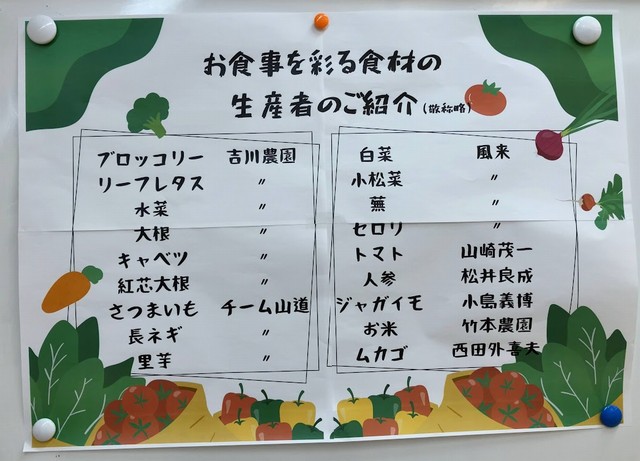 お食事を彩る食材の
生産者のご紹介(敬称略)
ブロッコリー 吉川農園
リーフレタス 〃
水菜 〃
大根 〃
キャベツ 〃
紅芯大根 〃
さつまいも チーム山道
長ネギ 〃
里芋 〃
白菜 風来
小松菜 〃
蕪 〃
セロリ 〃
トマト 山崎茂一
人参 松井良成
ジャガイモ 小島義博
お米 竹本農園
ムカゴ 西田外喜夫